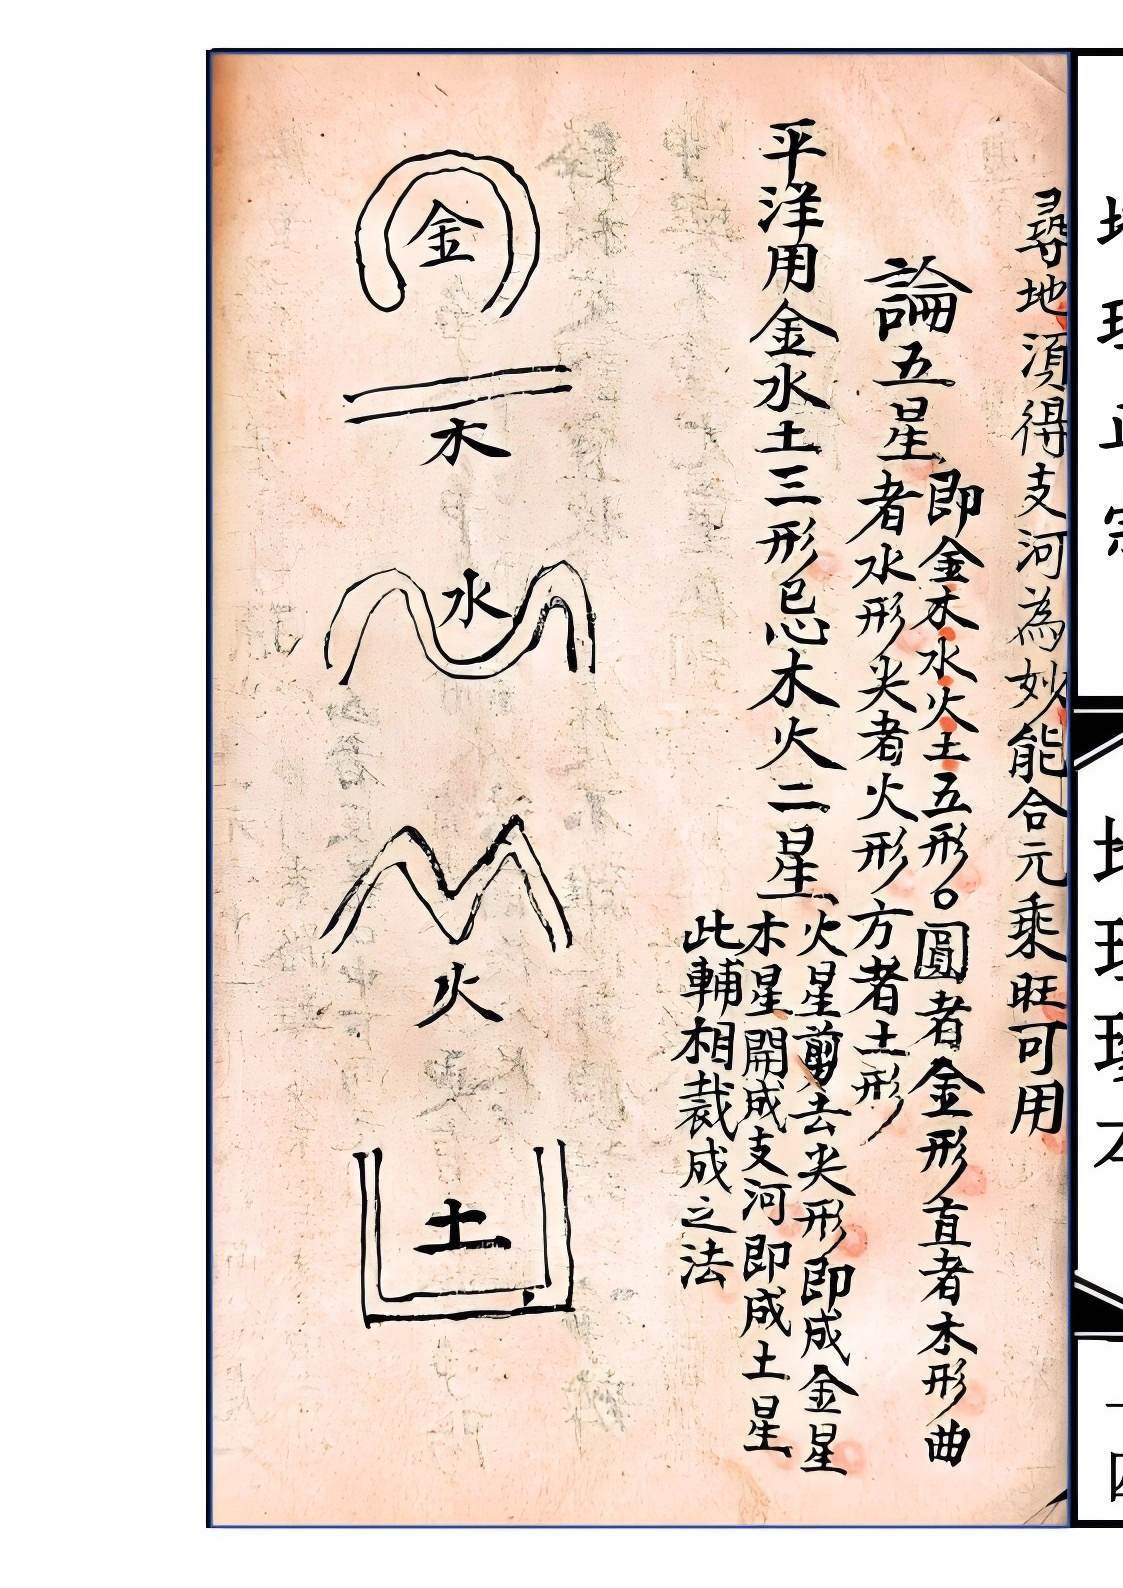 尋地湏得支河為妙能合元乘旺可用
論五星
即金木水火土五形。圓者金形直者木形曲
者水形尖者火形方者土形
平洋用金水土三形忌木火二星
火星剪去尖形即成金星
木星開成支河即成土星
此輔相裁成之法
金
木
水
火
土